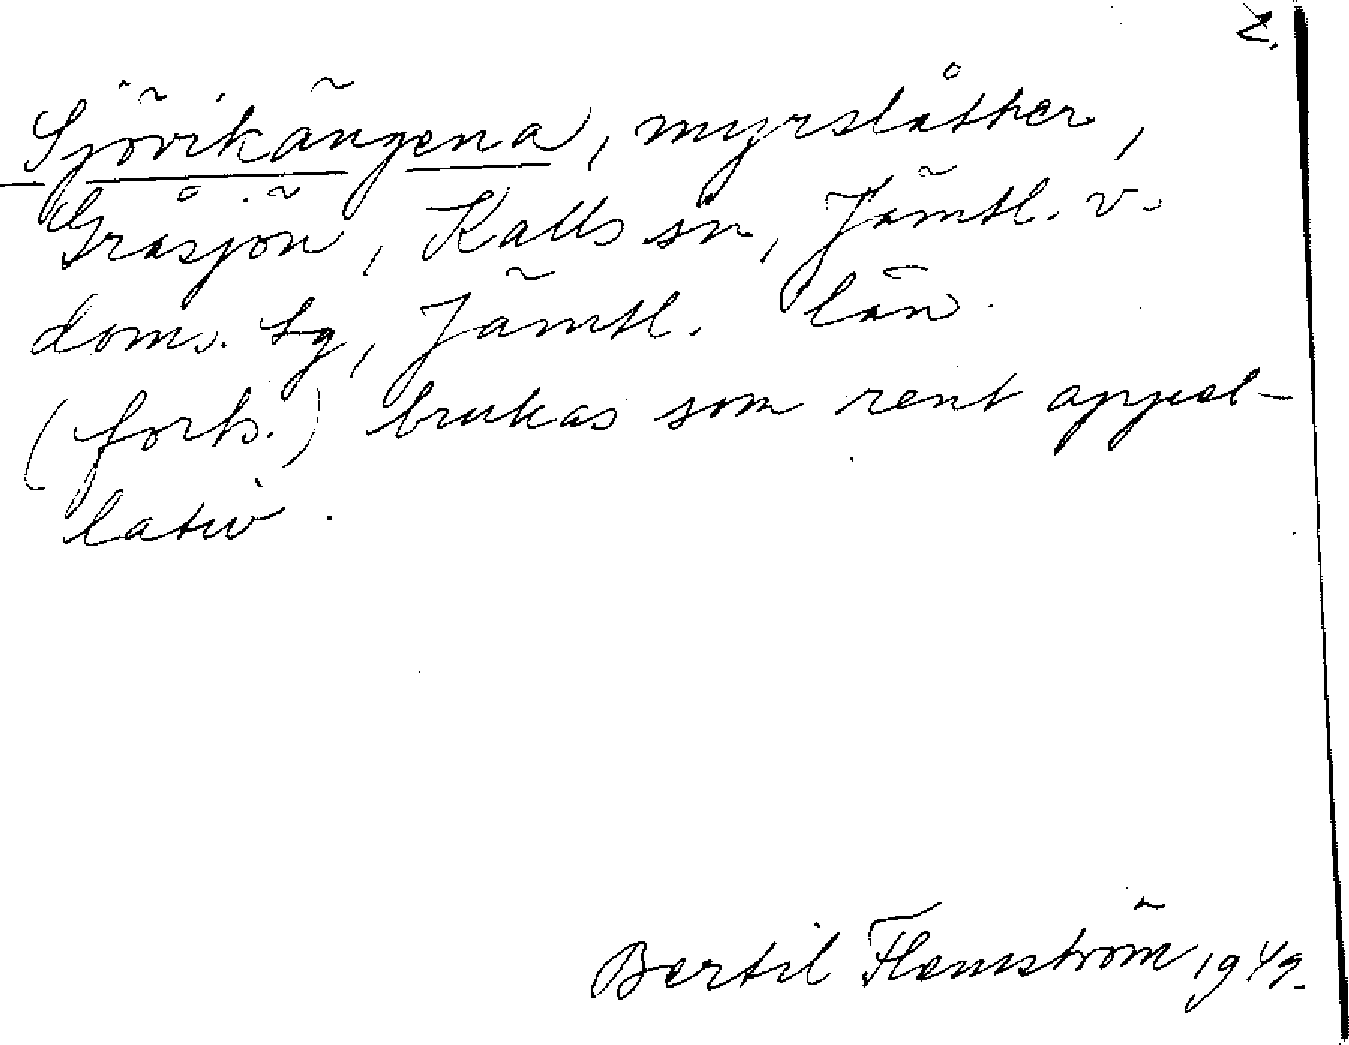 2.
Sjövikängena, myrslåtter,
Gråsjön, Kalls sn, Jämtl. v.
doms. tg, Jämtl. län.
(forts.) brukas som rent appel-
lativ.
Bertil Flemström 1949.